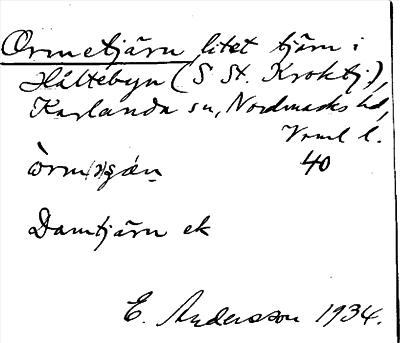 Ormetjärn litet tjärn i
Hältebyn (S St. Kroktj.),
Karlanda sn, Nordmarks hd,
Vrml l.
40
Damtjärn ek
E. Andersson 1934.